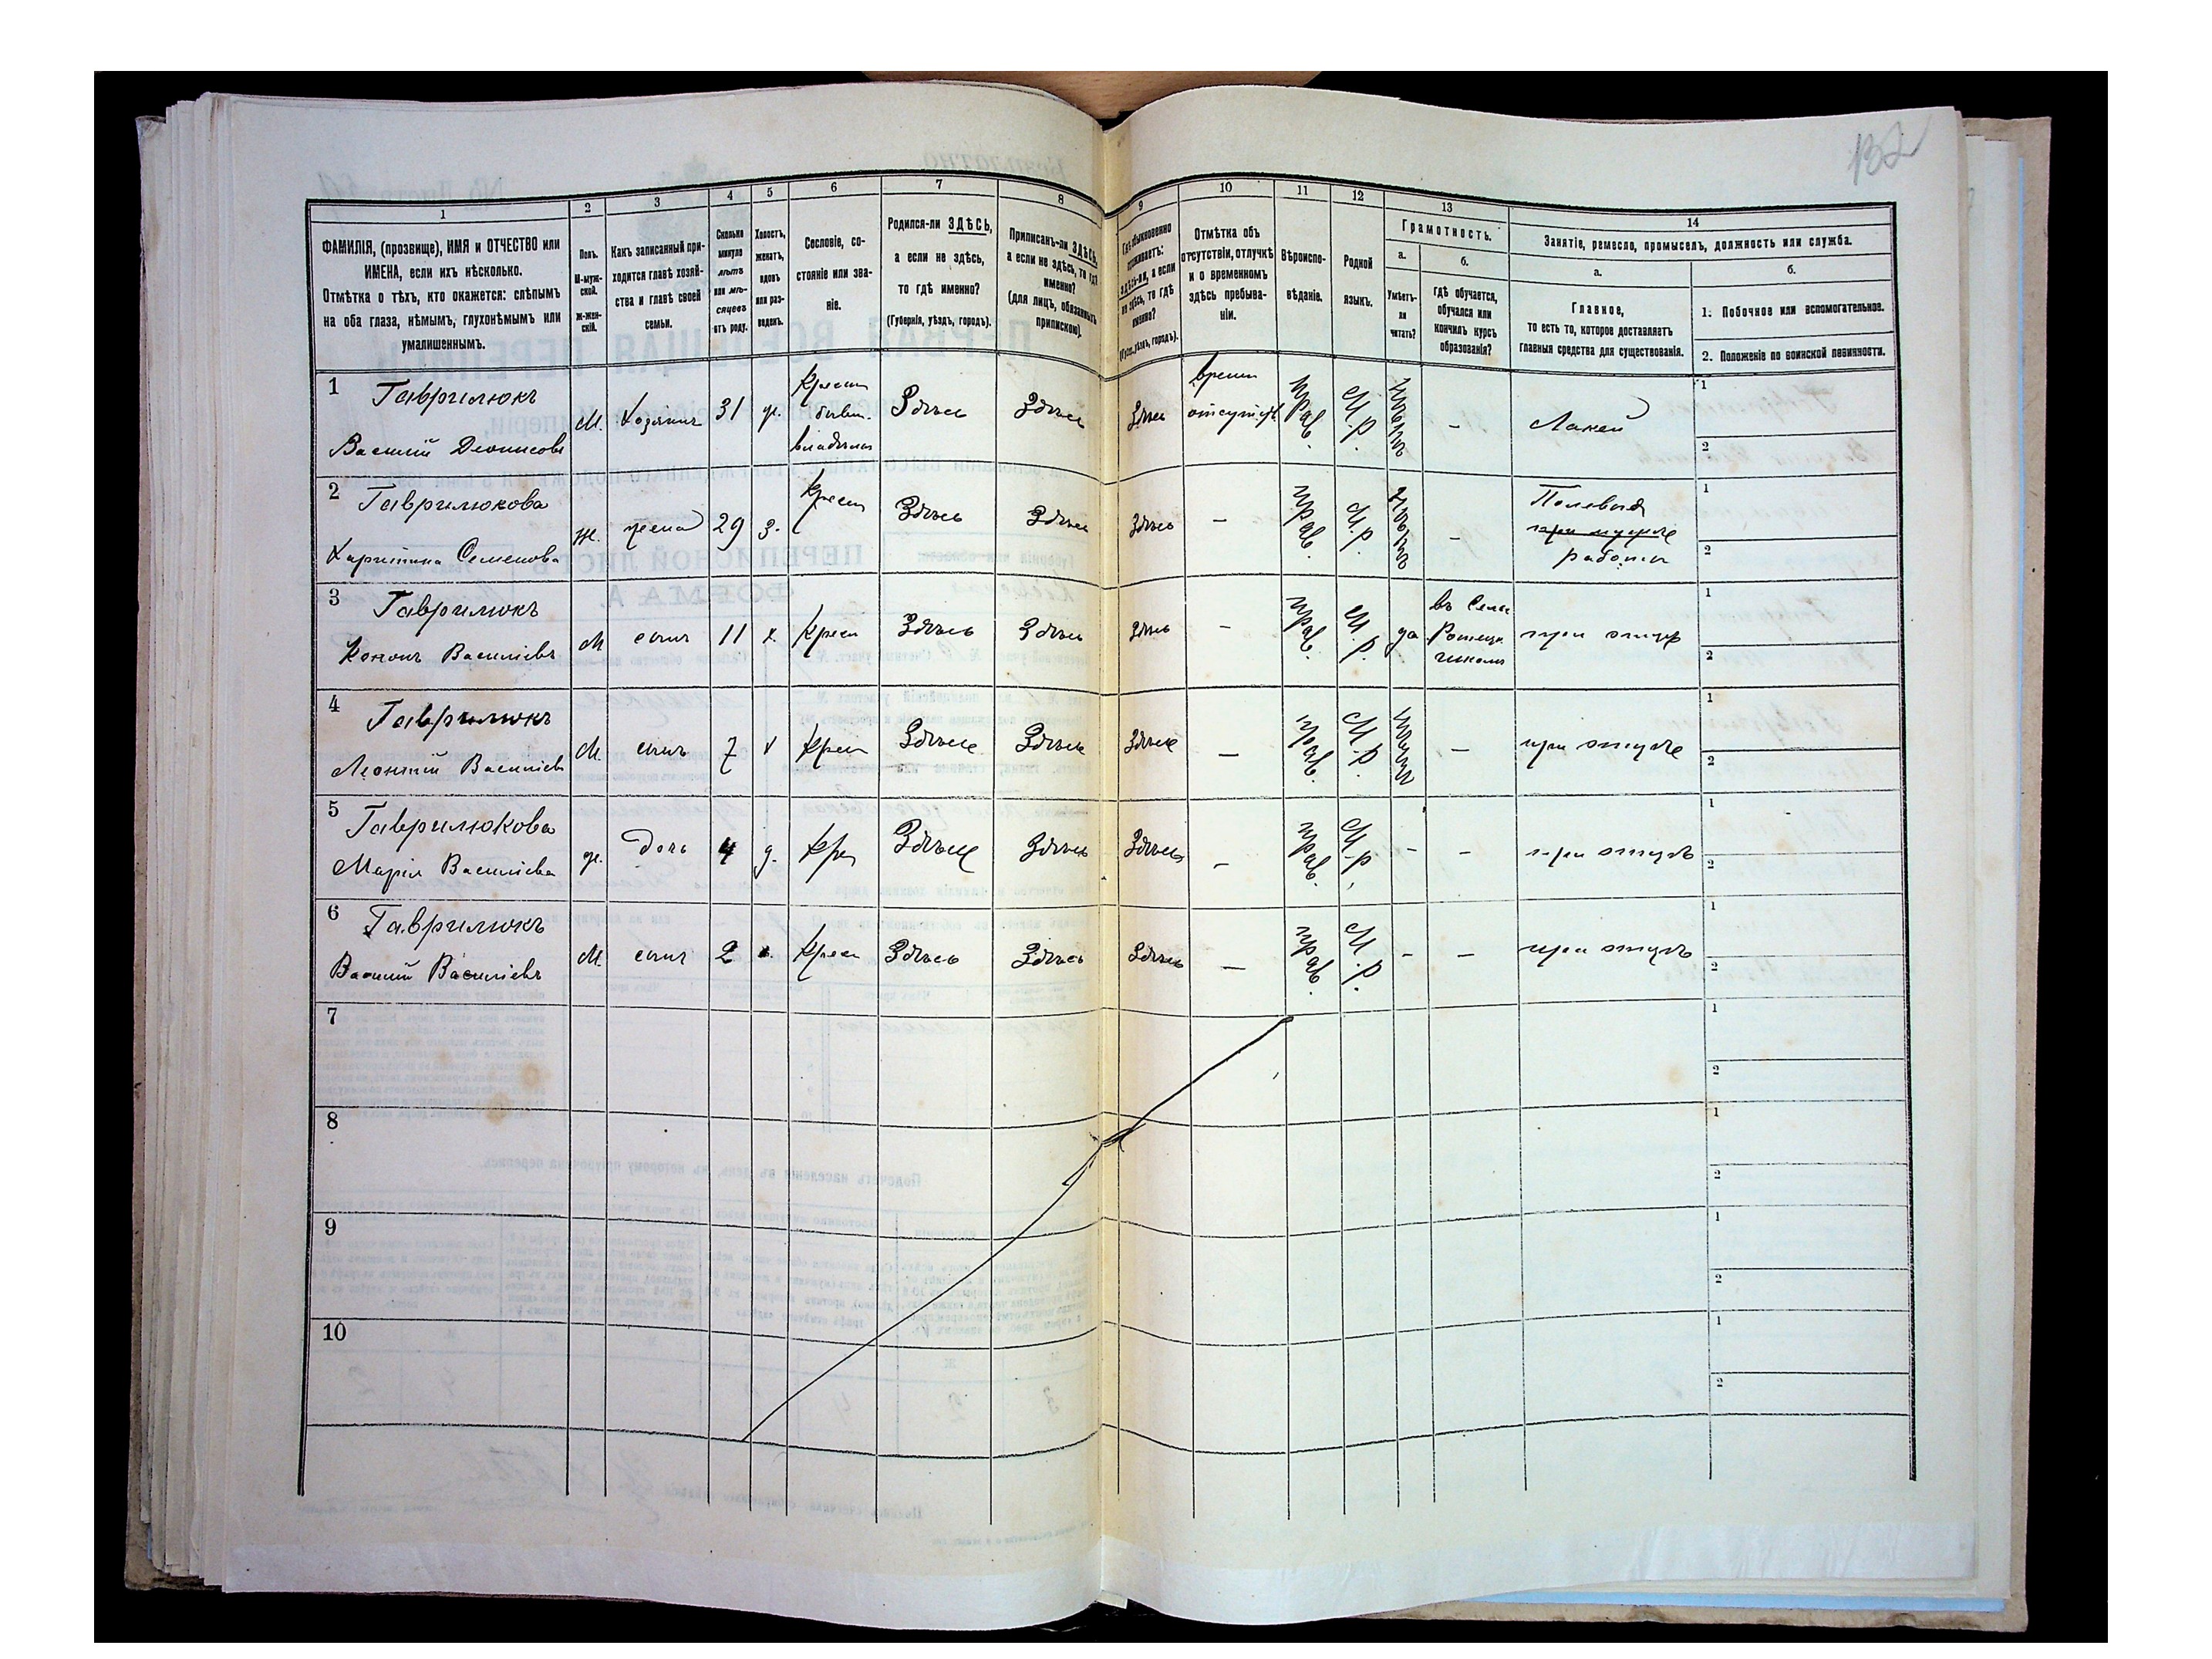 132
1
2
3
4
5
6
7
8
9
10
11
12
13
14
ФАМИЛІЯ, (прозвище), ИМЯ и ОТЧЕСТВО или
ИМЕНА, если ихъ нѣсколько.
Отмѣтка о тѣхъ, кто окажется: слѣпымъ
на оба глаза, нѣмымъ, глухонѣмымъ или
умалишеннымъ.
Полъ.
М-муж-
ской.
ж-жен-
скій.
Какъ записанный при-
ходится главѣ хозяй-
ства и главѣ своей
семьи.
Сколько
минуло
лѣтъ
или мѣ-
сяцевъ
отъ роду.
Холостъ,
женатъ,
вдовъ
или раз-
веденъ.
Сословіе, со-
стояніе или зва-
ніе.
Родился-ли ЗДѢСЬ,
а если не здѣсь,
то гдѣ именно?
(Губернія, уѣздъ, городъ).
Приписанъ-ли ЗДѢСЬ,
а если не здѣсь, то гдѣ
именно?
(для лицъ, обязанныхъ
припискою).
Гдѣ обыкновенно
проживаетъ:
здѣсь-ли, а если
не здѣсь, то гдѣ
именно?
(Губ., уѣздъ, городъ).
Отмѣтка объ
отсутствіи, отлучкѣ
и о временномъ
здѣсь пребыва-
ніи.
Вѣроиспо-
вѣданіе.
Родной
языкъ.
Грамотность.
а.
б.
Умѣетъ-
ли
читать?
гдѣ обучается,
обучался или
кончилъ курсъ
образованія?
Занятіе, ремесло, промыселъ, должность или служба.
а.
б.
Главное,
то есть то, которое доставляетъ
главныя средства для существованія.
1. Побочное или вспомогательное.
2. Положеніе по воинской повинности.
1 Гаврилюкъ
Василій Деонисовъ
М. Хозяинъ 31 ж.
Крест
бывш.
владѣльч
Здѣсь Здѣсь Здѣсь
времен
отсутств
прав. М.р. неграм. - Лакей
1
2
2 Гаврилюкова
Харитина Семенова
ж. жена 29 з. Крест Здѣсь Здѣсь Здѣсь - прав. М.р. -
Полевыя
при мужѣ
работы
1
2
3 Гаврилюкъ
Кононъ Василіевъ
М сынъ 11 х. Крест Здѣсь Здѣсь Здѣсь - прав. М.р. да
въ Сельс
школѣ
при отцѣ
1
2
4 Гаврилюкъ
Леонтій Василіевъ
М. сынъ 7 х Крест Здѣсь Здѣсь Здѣсь - прав. М.р. - при отцѣ
1
2
5 Гаврилюкова
Марія Василіева
ж. дочь 4 д. Кре Здѣсь Здѣсь Здѣсь - прав. М.р. - - при отцѣ
1
2
6 Гаврилюкъ
Василій Василіевъ
М. сынъ 2 х. Крест Здѣсь Здѣсь Здѣсь - прав. М.р. - - при отцѣ
1
2
7
1
2
8
1
2
9
1
2
10
1
2